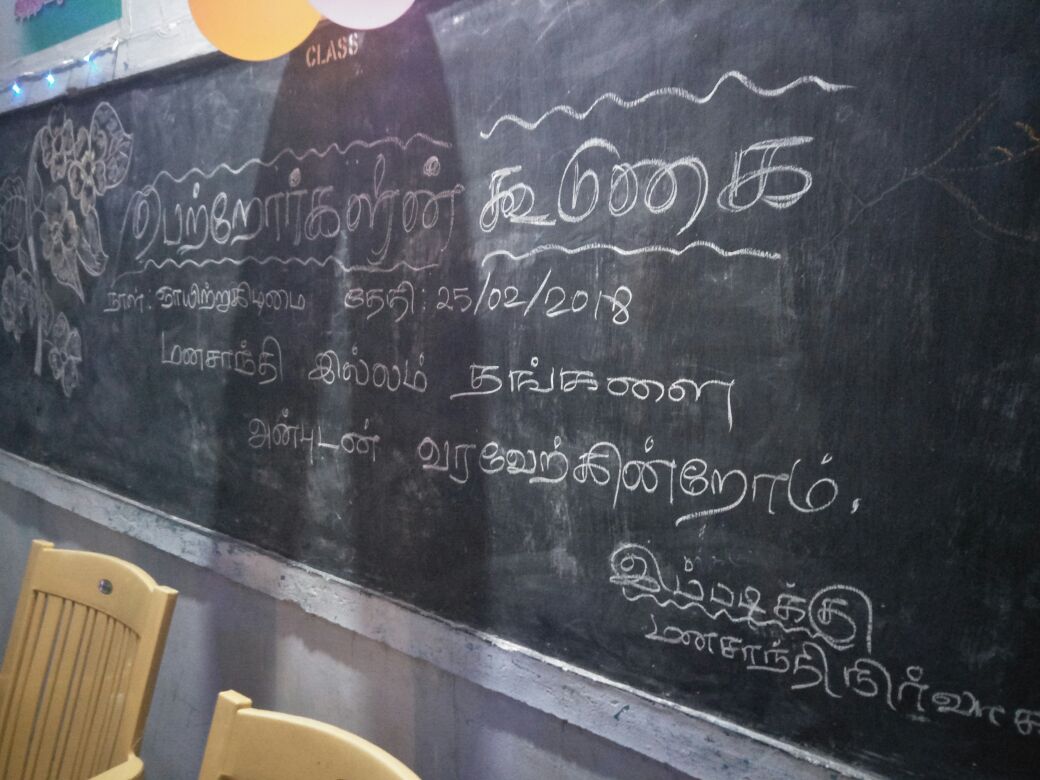 CLASS
பெற்றோர்களின் கூடுகை
நாள்: ஞாயிற்றுகிழமை தேதி: 25/02/2018
மனசாந்தி இல்லம் தங்களை
அன்புடன் வரவேற்கின்றோம்.
இப்படிக்கு
மனசாந்தி நிர்வாக